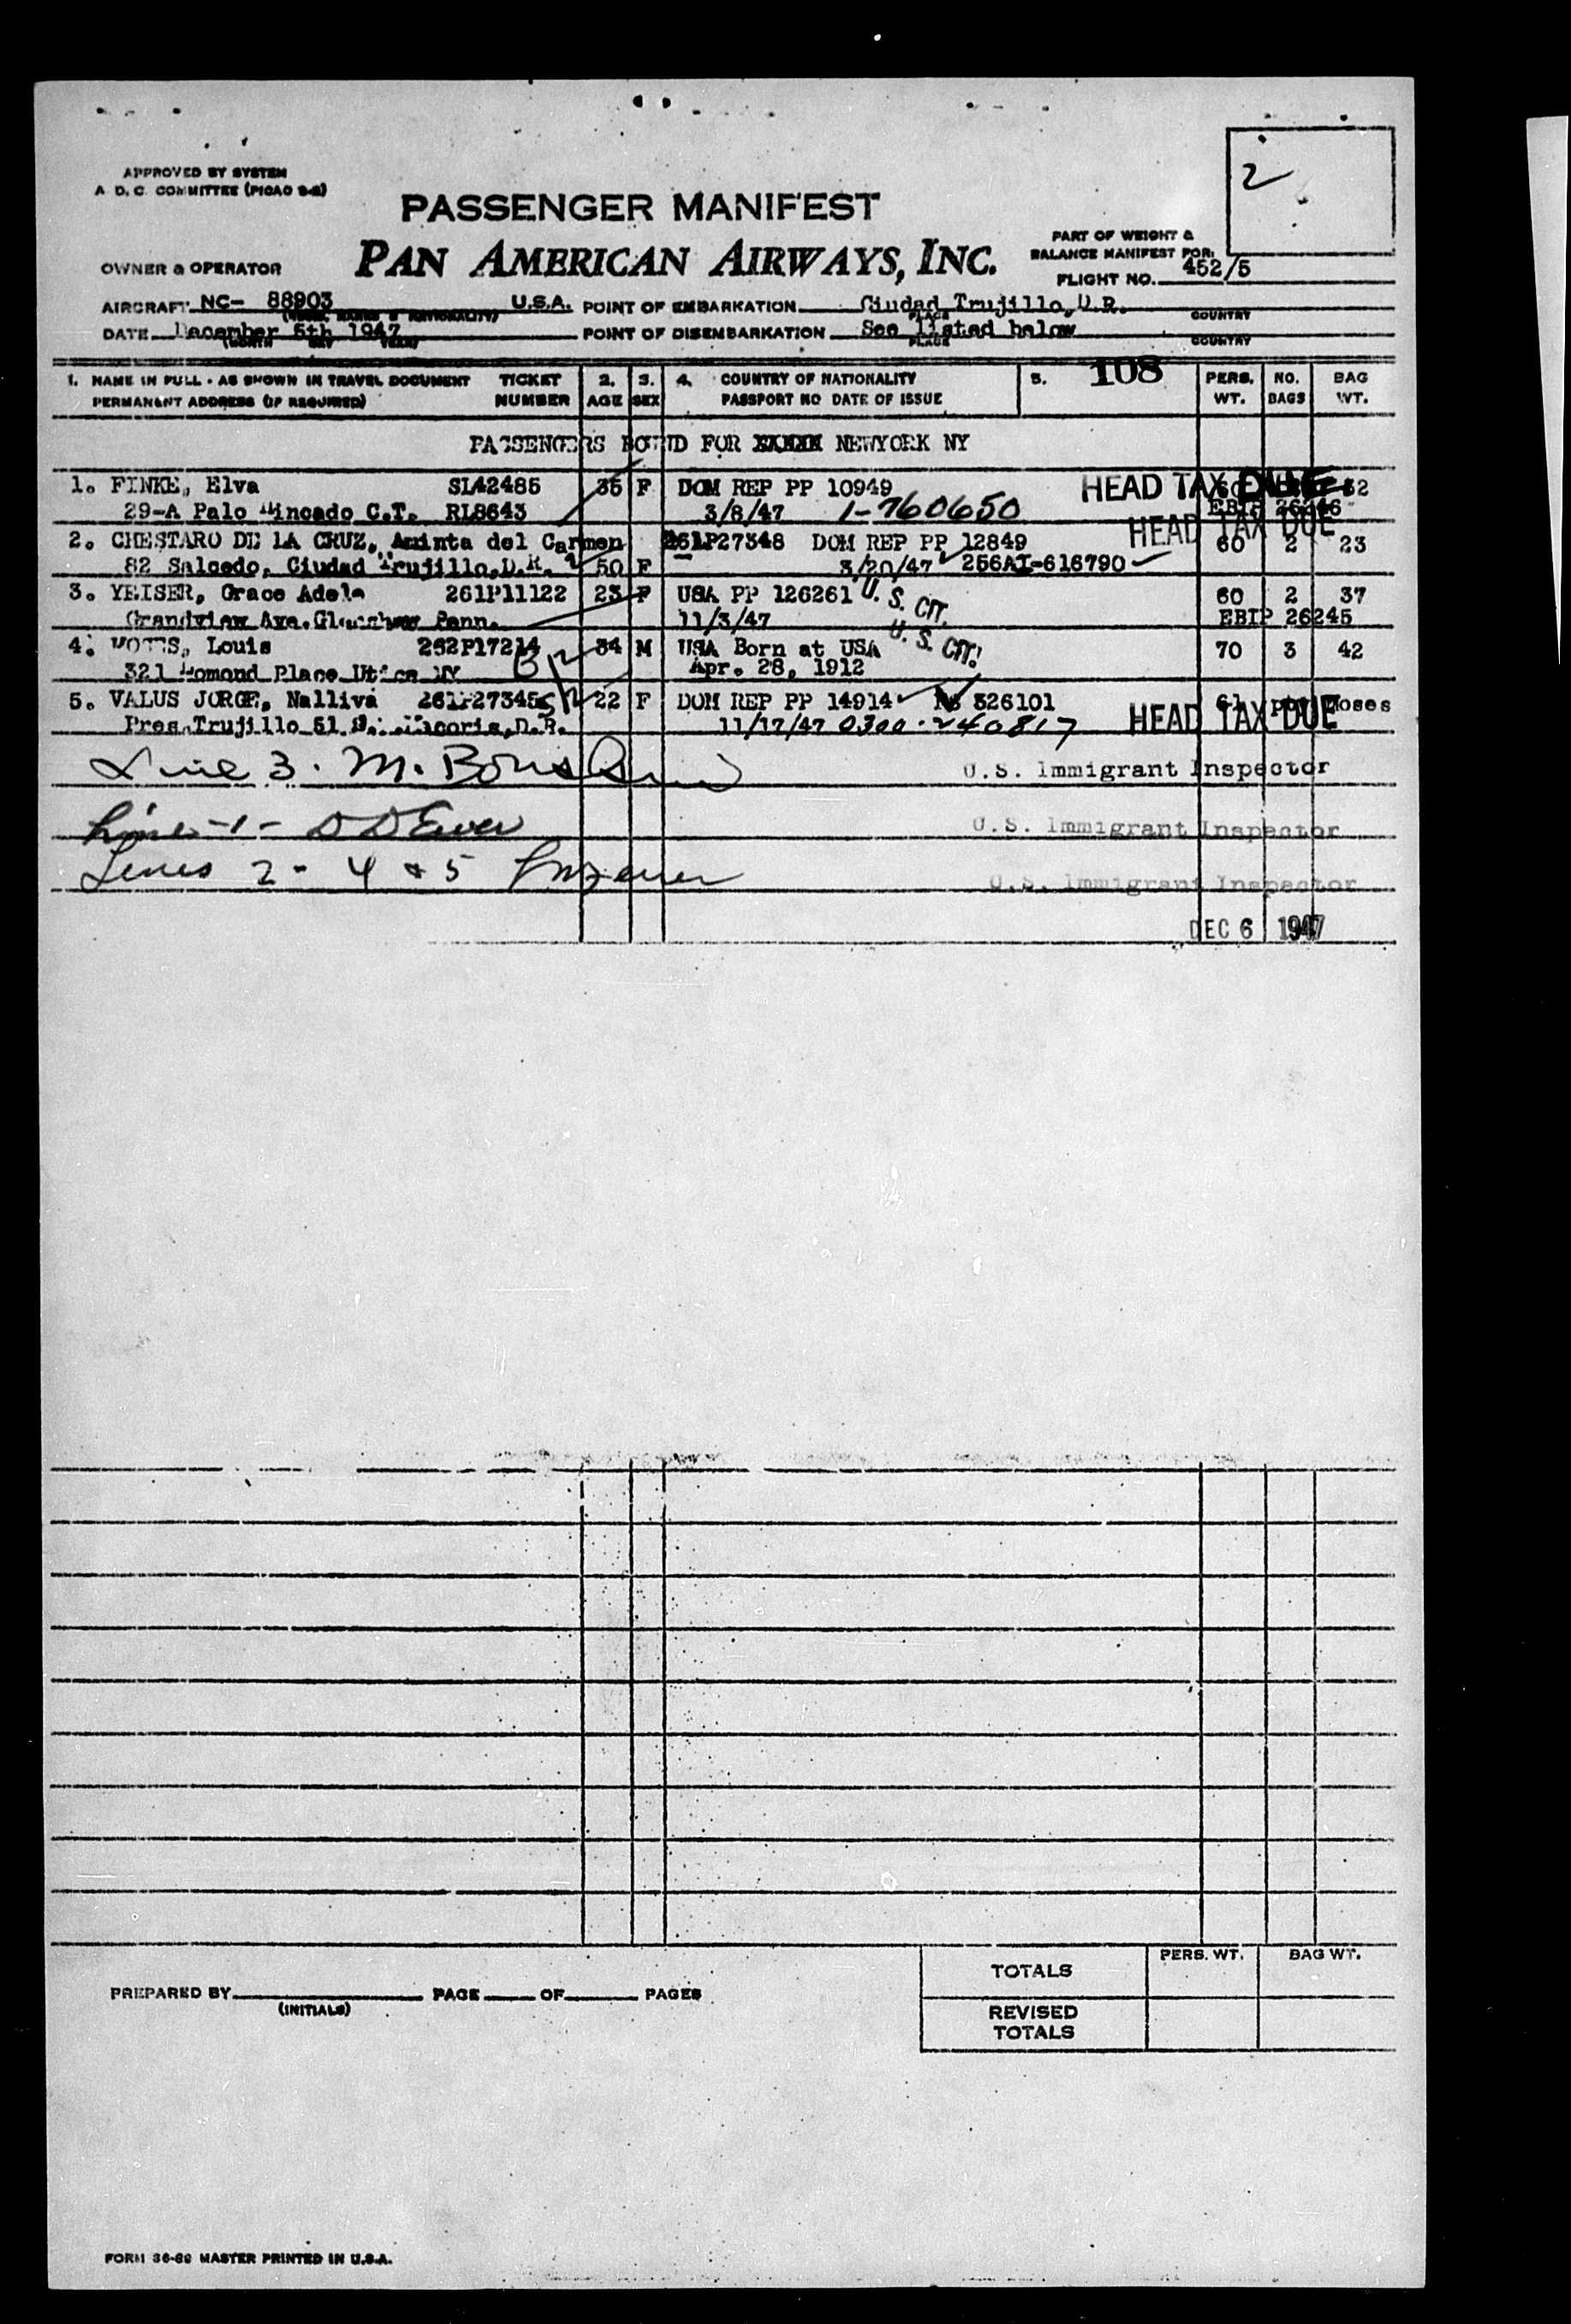 2
APPROVED BY SYSTEM
A. D. C. COMMITTEE (PICAO 9-2)
PASSENGER MANIFEST
PART OF WEIGHT &
BALANCE MANIFEST FOR:
OWNER & OPERATOR PAN AMERICAN AIRWAYS, INC. FLIGHT NO. 452/5
AIRCRAFT NC- 88903 U.S.A. POINT OF EMBARKATION Ciudad Trujillo, D.R.
PLACE COUNTRY
DATE December 5th 1947 POINT OF DISEMBARKATION See listed below
(MONTH DAY YEAR) PLACE COUNTRY
108
1. NAME IN FULL - AS SHOWN IN TRAVEL DOCUMENT TICKET 2. 3. 4. COUNTRY OF NATIONALITY 5. PERS. NO. BAG
PERMANENT ADDRESS (IF REQUIRED) NUMBER AGE SEX PASSPORT NO DATE OF ISSUE WT. BAGS WT.
PASSENGERS BOUND FOR NEWYORK NY
1. FINKE, Elva SL42485 35 F DOM REP PP 10949 HEAD TAX DUE 32
29-A Palo Hincado C.T. RL8643 3/8/47 1-760650 EBIP 26246
2. CHESTARO DE LA CRUZ, Aminta del Carmen 261P27348 DOM REP PP 12849 HEAD TAX DUE 60 2 23
82 Salcedo, Ciudad Trujillo, D.R. 50 F 3/20/47 256AI-616790
3. YEISER, Grace Adela 261P11122 23 F USA PP 126261 U. S. CIT. 60 2 37
Grandview Ave. Glenshaw Penn. 11/3/47 EBIP 26245
4. Louis 262P17214 34 M USA Born at USA U. S. CIT. 70 3 42
321 Place Utica NY Apr. 28, 1912
5. VALUS JORGE, Nalliva 261P27345 22 F DOM REP PP 14914 326101 61
Pres. Trujillo 51 Macoris, D.R. 11/17/47 0300-240817 HEAD TAX DUE
Line 3. M. U.S. Immigrant Inspector
Line -1- U.S. Immigrant Inspector
Lines 2 - 4 & 5 U.S. Immigrant Inspector
DEC 6 1947
PERS. WT. BAG WT.
TOTALS
PREPARED BY PAGE OF PAGES
(INITIALS)
REVISED
TOTALS
FORM 36-69 MASTER PRINTED IN U.S.A.